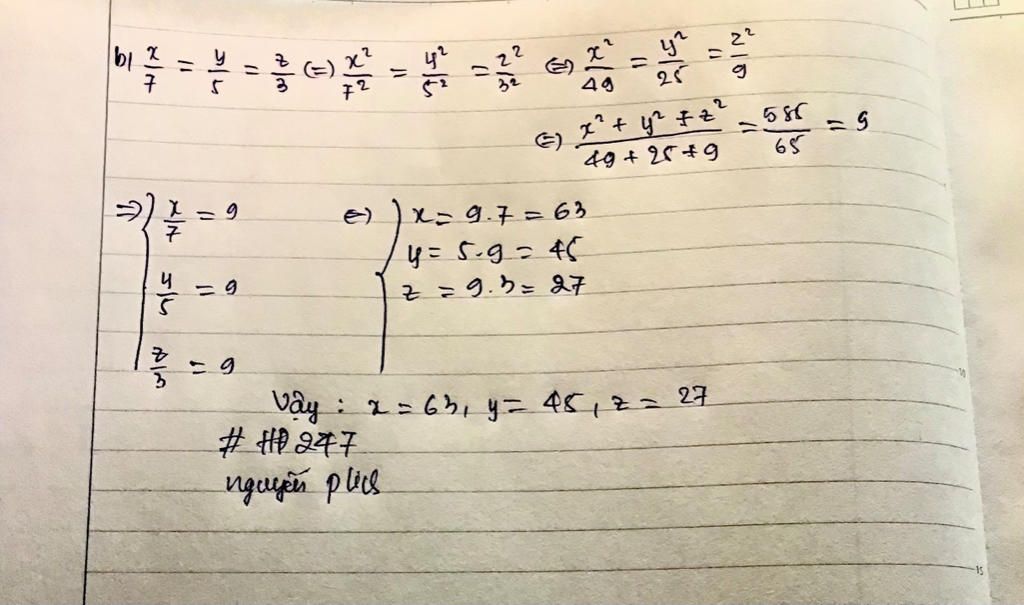 b) x/7 = y/5 = z/3 (=) x²/7² = y²/5² = z²/3² (=) x²/49 = y²/25 = z²/9
(=) (x² + y² + z²)/(49 + 25 + 9) = 585/65 = 9
=> { x/7 = 9 (=) { x = 9.7 = 63
y = 5.9 = 45
y/5 = 9
z = 9.3 = 27
z/3 = 9
Vậy : x = 63, y = 45, z = 27
# 247
nguyễn
10
15